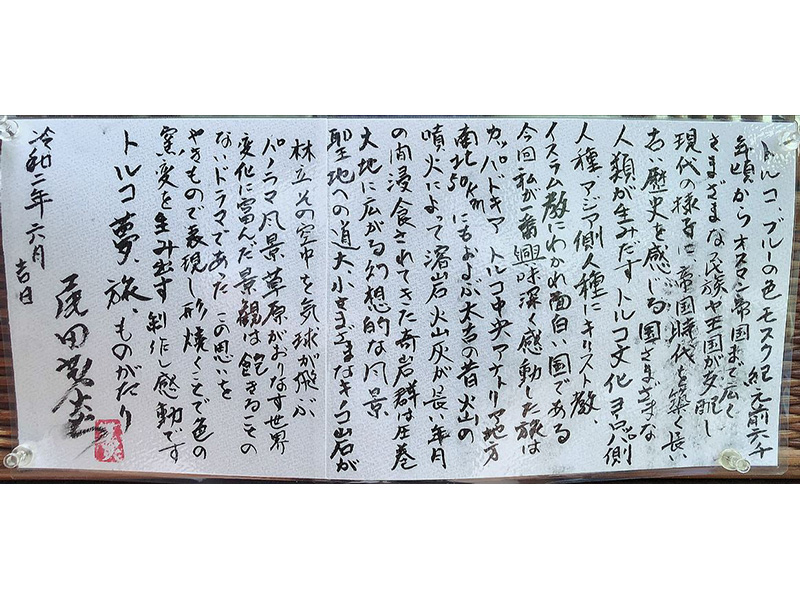 トルコ、ブルーの色モスク紀元前六千
年頃からオスマン帝国まで広く
さまざまな民族や王国が支配し
現代の様な帝国時代を築く長い
古い歴史を感じる国さまざまな
人類が生みだすトルコ文化ヨーロッパ側
人種アジア側人種にキリスト教、
イスラム教にわかれ面白い国である
今回私が一番興味深く感動した旅は
カッパドキアトルコ中央アナトリア地方
南北50Kmにもおよぶ太古の昔火山の
噴火によって溶岩火山灰が長い年月
の間浸食されてきた奇岩群は圧巻
大地に広がる幻想的な風景
聖地への道大小さまざまなキノコ岩が
林立その空中を気球が飛ぶ
パノラマ風景草原がおりなす世界
変化に富んだ景観は飽きることの
ないドラマであったこの思いを
やきもので表現し形焼くことで色の
窯変を生み出す制作し感動です
トルコ夢、旅、ものがたり
令和二年六月吉日